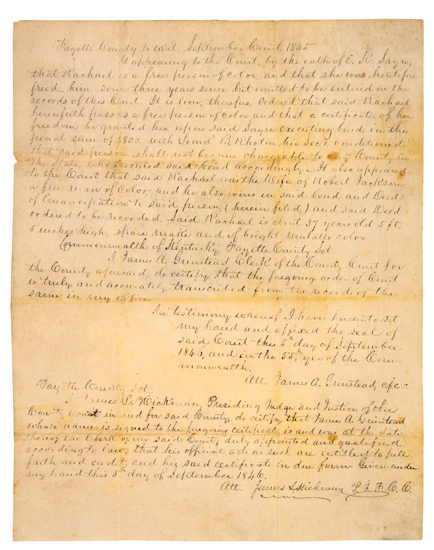 Fayette County to wit September Court 1845
It appearing to the Court, by the oath of E. K. Sayre,
that Rachael is a free person of color, and that she was heretofore
freed him some three years since but omitted to be entered on the
records of this Court. It is now, therefore ordered that said Rachael
henceforth pass as a free person of color and that a certificate of her
freedom be granted her upon said Sayre Executing bond in the
penal sum of $500, with his Security conditioned
that said person shall not become chargeable to any County in
the State, who Executed said bond accordingly. It also appeared
to the Court that said Rachael was the Wife of Robert Jackson
a free man of Color and he also joins in said bond and Deed
of Emancipation to said person (herein filed) and said Deed
ordered to be recorded. Said Rachael is about 37 years old 5 ft.
inches high, spare make and of bright mulatto color
Commonwealth of Kentucky Fayette County Sct.
I, James A. Grinstead Clerk of the County Court for
the County aforesaid, do certify that the foregoing order of Court
is truly and accurately transcribed from the records of the
same in my office.
In testimony whereof I have hereunto set
my hand and affixed the seal of
said Court this 5th day of September
1846, and in the 55th year of the Com-
monwealth.
Att. James A. Grinstead, cfcc
Fayette County Sct.
I James L. Hickman, Presiding Judge and Justice of the
County Court in and for said County, do certify, that James A. Grinstead
whose name is signed to the foregoing certificate is and was at the date
thereof the Clerk of our said County duly appointed and qualified
according to law, that his official acts as such are entitled to full
faith and credit, and his said certificate in due form Given under
my hand this 5th day of September 1846.
Att. James L Hickman P. J. F. C. C.